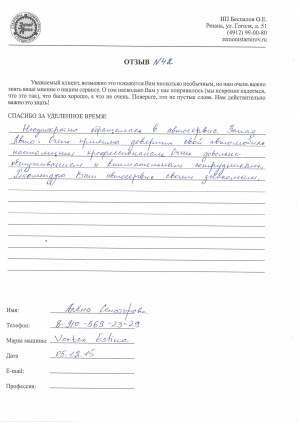 ИП Беспалов О.Е.
Рязань, ул. Гоголя, д. 51
(4912) 99-00-80
remontstarterov.ru
ОТЗЫВ №42
Уважаемый клиент, возможно это покажется Вам несколько необычным, но нам очень важно
знать ваше мнение о нашем сервисе. О том насколько Вам у нас понравилось (мы искренне надеемся,
что это так), что было хорошо, а что не очень. Поверьте, это не пустые слова. Нам действительно
важно это знать!
СПАСИБО ЗА УДЕЛЕННОЕ ВРЕМЯ!
Неоднократно обращалась в автосервис
Авто. Очень приятно доверить свой автомобиль
настоящим профессионалам. Очень довольна
обслуживанием и внимательными сотрудниками.
Рекомендую Ваш автосервис своим знакомым.
Имя: Алёна
Телефон: 8-910-569-23-29
Марка машины: Vortex Estina
Дата 05.12.15
E-mail:
Профессия: